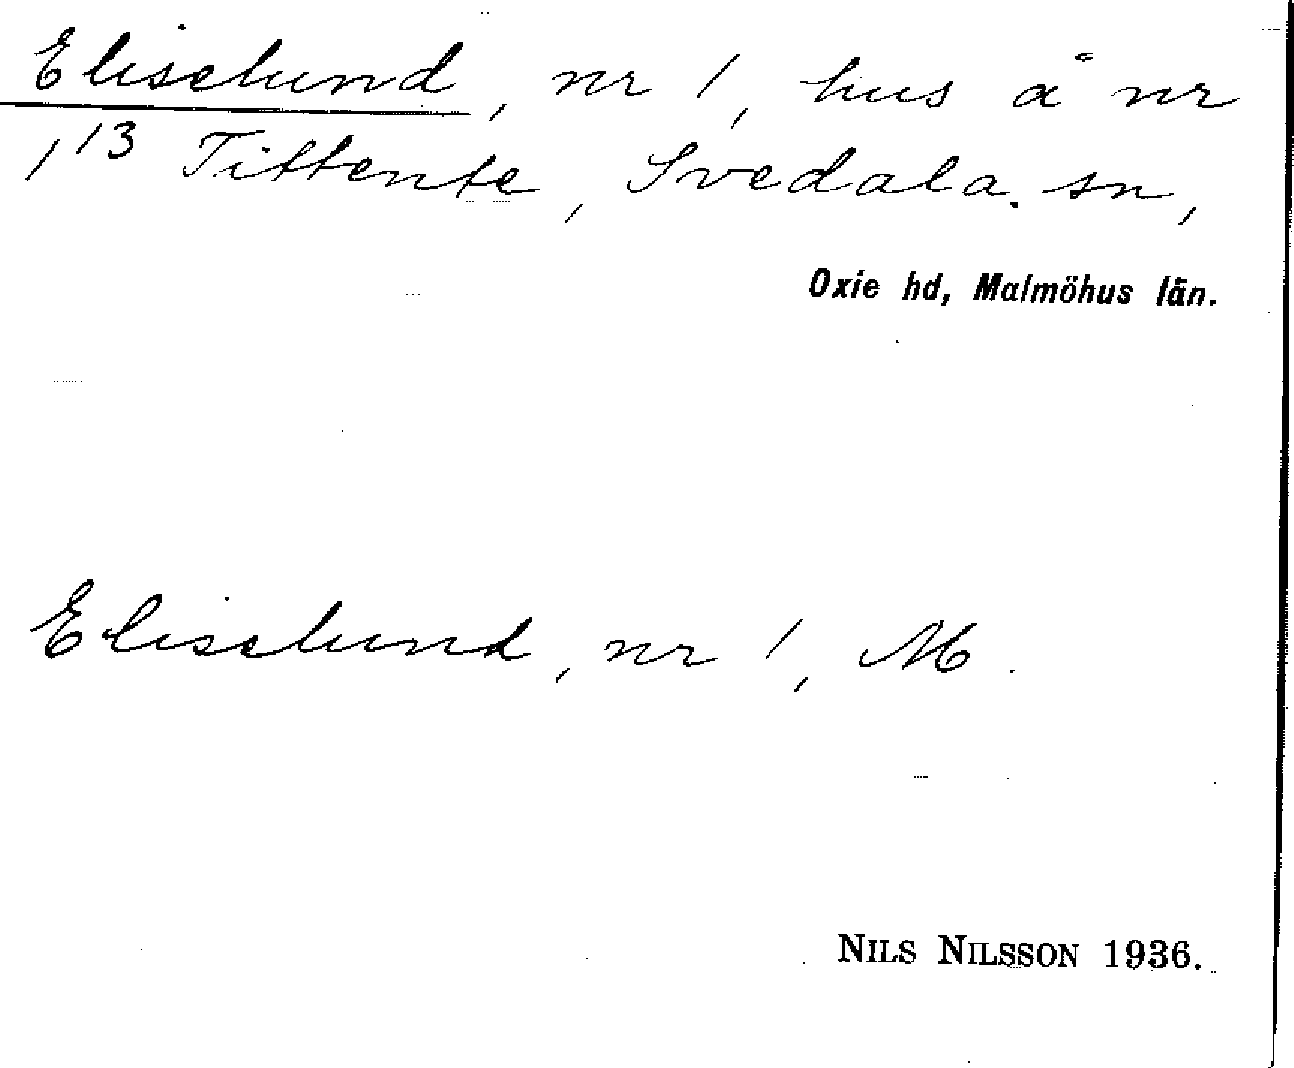 Eliselund, nr 1, hus å nr
1 13 Tittente, Svedala sn,
Oxie hd, Malmöhus län.
Eliselund, nr 1, M.
NILS NILSSON 1936.